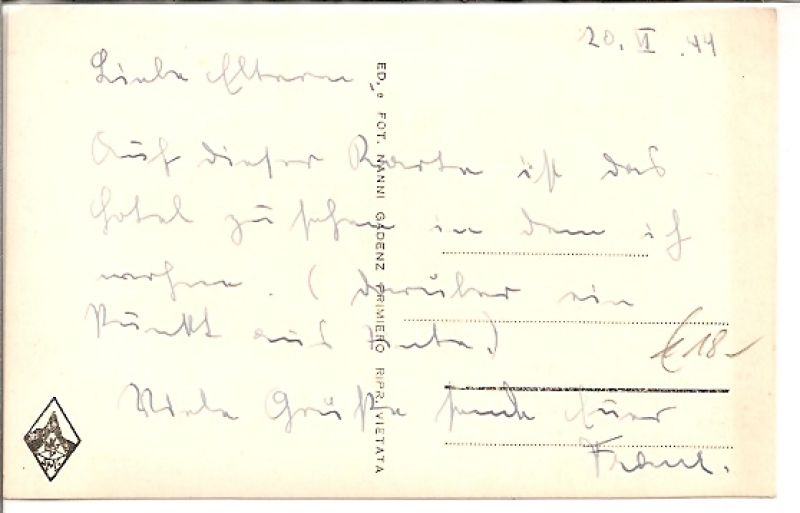 20. VI .44
Liebe Eltern,
Auf dieser Karte ist das
Hotel zu sehen in dem ich
wohne. (darüber ein
Punkt aus Tinte.)
Viele Grüße sende Euer
ED. e FOT. NANNI GADENZ PRIMIERO RIPR. VIETATA
18